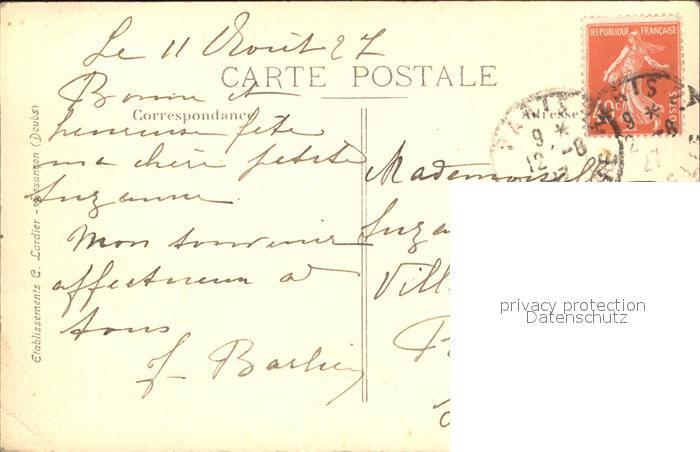 Le 11 Août 27
CARTE POSTALE
Correspondance
Adresse
Bonne et
heureuse fête
ma chère petite
Suzanne
Mon souvenir
affectueux à
tous
f Barbier
Mademoiselle
Suza
Vill
Etablissements C. Lardier - Besançon (Doubs)
REPUBLIQUE FRANÇAISE
POSTES
PARIS
9 *
12 -8
PARIS
9 *
12 -8
27
privacy protection
Datenschutz